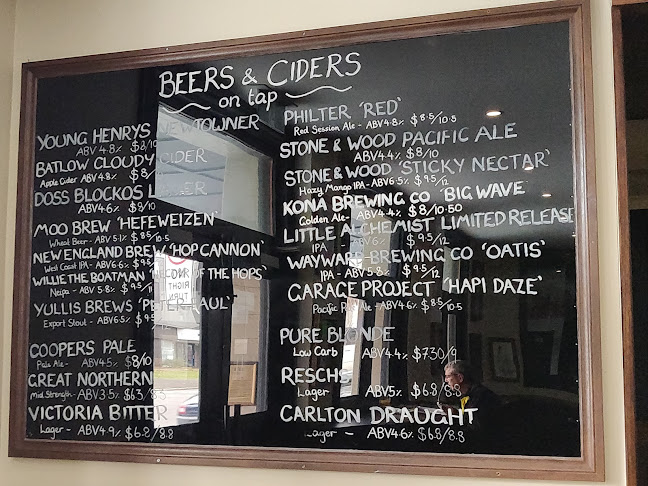 BEERS & CIDERS
on tap
YOUNG HENRYS NEWTOWNER
ABV 4.8% $8/10
BATLOW CLOUDY CIDER
Apple Cider ABV 4.8% $8/
DOSS BLOCKOS LAGER
ABV 4.6% $9/10
MOO BREW 'HEFEWEIZEN'
Wheat Beer - ABV 5.1% $8.5/10.5
NEW ENGLAND BREW 'HOP CANNON'
West Coast IPA - ABV 6.6% $9.5/
WILLIE THE BOATMAN OF THE HOPS'
Neipa - ABV 5.8% $9.5/11
YULLIS BREWS 'PETER PAUL'
Export Stout - ABV 6.5% $9.5
COOPERS PALE
Pale Ale - ABV 4.5% $8/10
GREAT NORTHERN
Mid Strength - ABV 3.5% $6.3/8.3
VICTORIA BITTER
Lager - ABV 4.9% $6.8/8.8
PHILTER 'RED'
Red Session Ale - ABV 4.8% $8.5/10.5
STONE & WOOD PACIFIC ALE
ABV 4.4% $8/10
STONE & WOOD 'STICKY NECTAR'
Hazy Mango IPA - ABV 6.5% $9.5/12
KONA BREWING CO 'BIG WAVE
Golden Ale - ABV 4.4% $8/10.50
LITTLE ALCHEMIST LIMITED RELEASE
IPA - ABV 6% $9.5/12
WAYWARD BREWING CO 'OATIS'
IPA - ABV 5.8% $9.5/12
GARAGE PROJECT 'HAPI DAZE'
Pacific Pale Ale - ABV 4.6% $8.5/10.5
PURE BLONDE
Low Carb ABV 4.4% $7.30/9
RESCHS
Lager ABV 5% $6.8/8.8
CARLTON DRAUGHT
Lager - ABV 4.6% $6.8/8.8